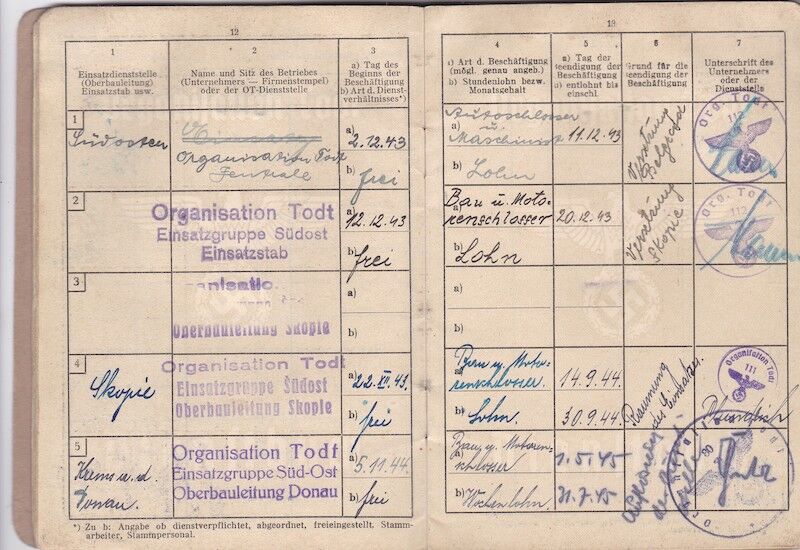 12
1
Einsatzdienststelle
(Oberbauleitung)
Einsatzstab usw.
2
Name und Sitz des Betriebes
(Unternehmers — Firmenstempel)
oder der OT-Dienststelle
3
a) Tag des
Beginns der
Beschäftigung
b) Art d. Dienst-
verhältnisses*)
1
Südosten
Organisation Todt
Zentrale
a) 2.12.43
b) frei
2
Organisation Todt
Einsatzgruppe Südost
Einsatzstab
a) 12.12.43
b) frei
3
anisatio
Oberbauleitung Skopie
a)
b)
4
Skopie
Organisation Todt
Einsatzgruppe Südost
Oberbauleitung Skopie
a) 22.XII.43.
b) frei
5
Krems a.d.
Donau.
Organisation Todt
Einsatzgruppe Süd-Ost
Oberbauleitung Donau
a) 5.11.44.
b) frei
*) Zu b: Angabe ob dienstverpflichtet, abgeordnet, freieingestellt, Stamm-
arbeiter, Stammpersonal.
13
4
a) Art d. Beschäftigung
(mögl. genau angeb.)
b) Stundenlohn bezw.
Monatsgehalt
5
a) Tag der
Beendigung der
Beschäftigung
b) entlohnt bis
einschl.
6
Grund für die
Beendigung der
Beschäftigung
7
Unterschrift des
Unternehmers
oder der
Dienststelle
Autoschlosser
a) u.
Maschinist
11.12.43
b) Lohn
Versetzung
Belgrad
Org. Todt
Bau u. Moto-
a) renschlosser
20.12.43
b) Lohn
Versetzung
Skopie
Org. Todt
a)
b)
Bau u. Moto-
a) renschlosser.
14.9.44.
b) Lohn.
30.9.44.
Räumung
des Einsatzes.
Organisation Todt
111
Bau u. Motoren-
a) schlosser
1.5.45
b) Wochenlohn
31.7.45
Auflösung
der